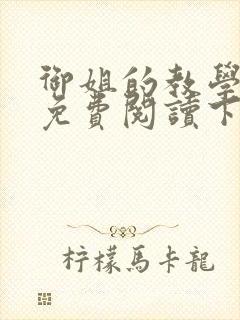 御姐的教學
免費閱讀下
柠檬馬卡龍